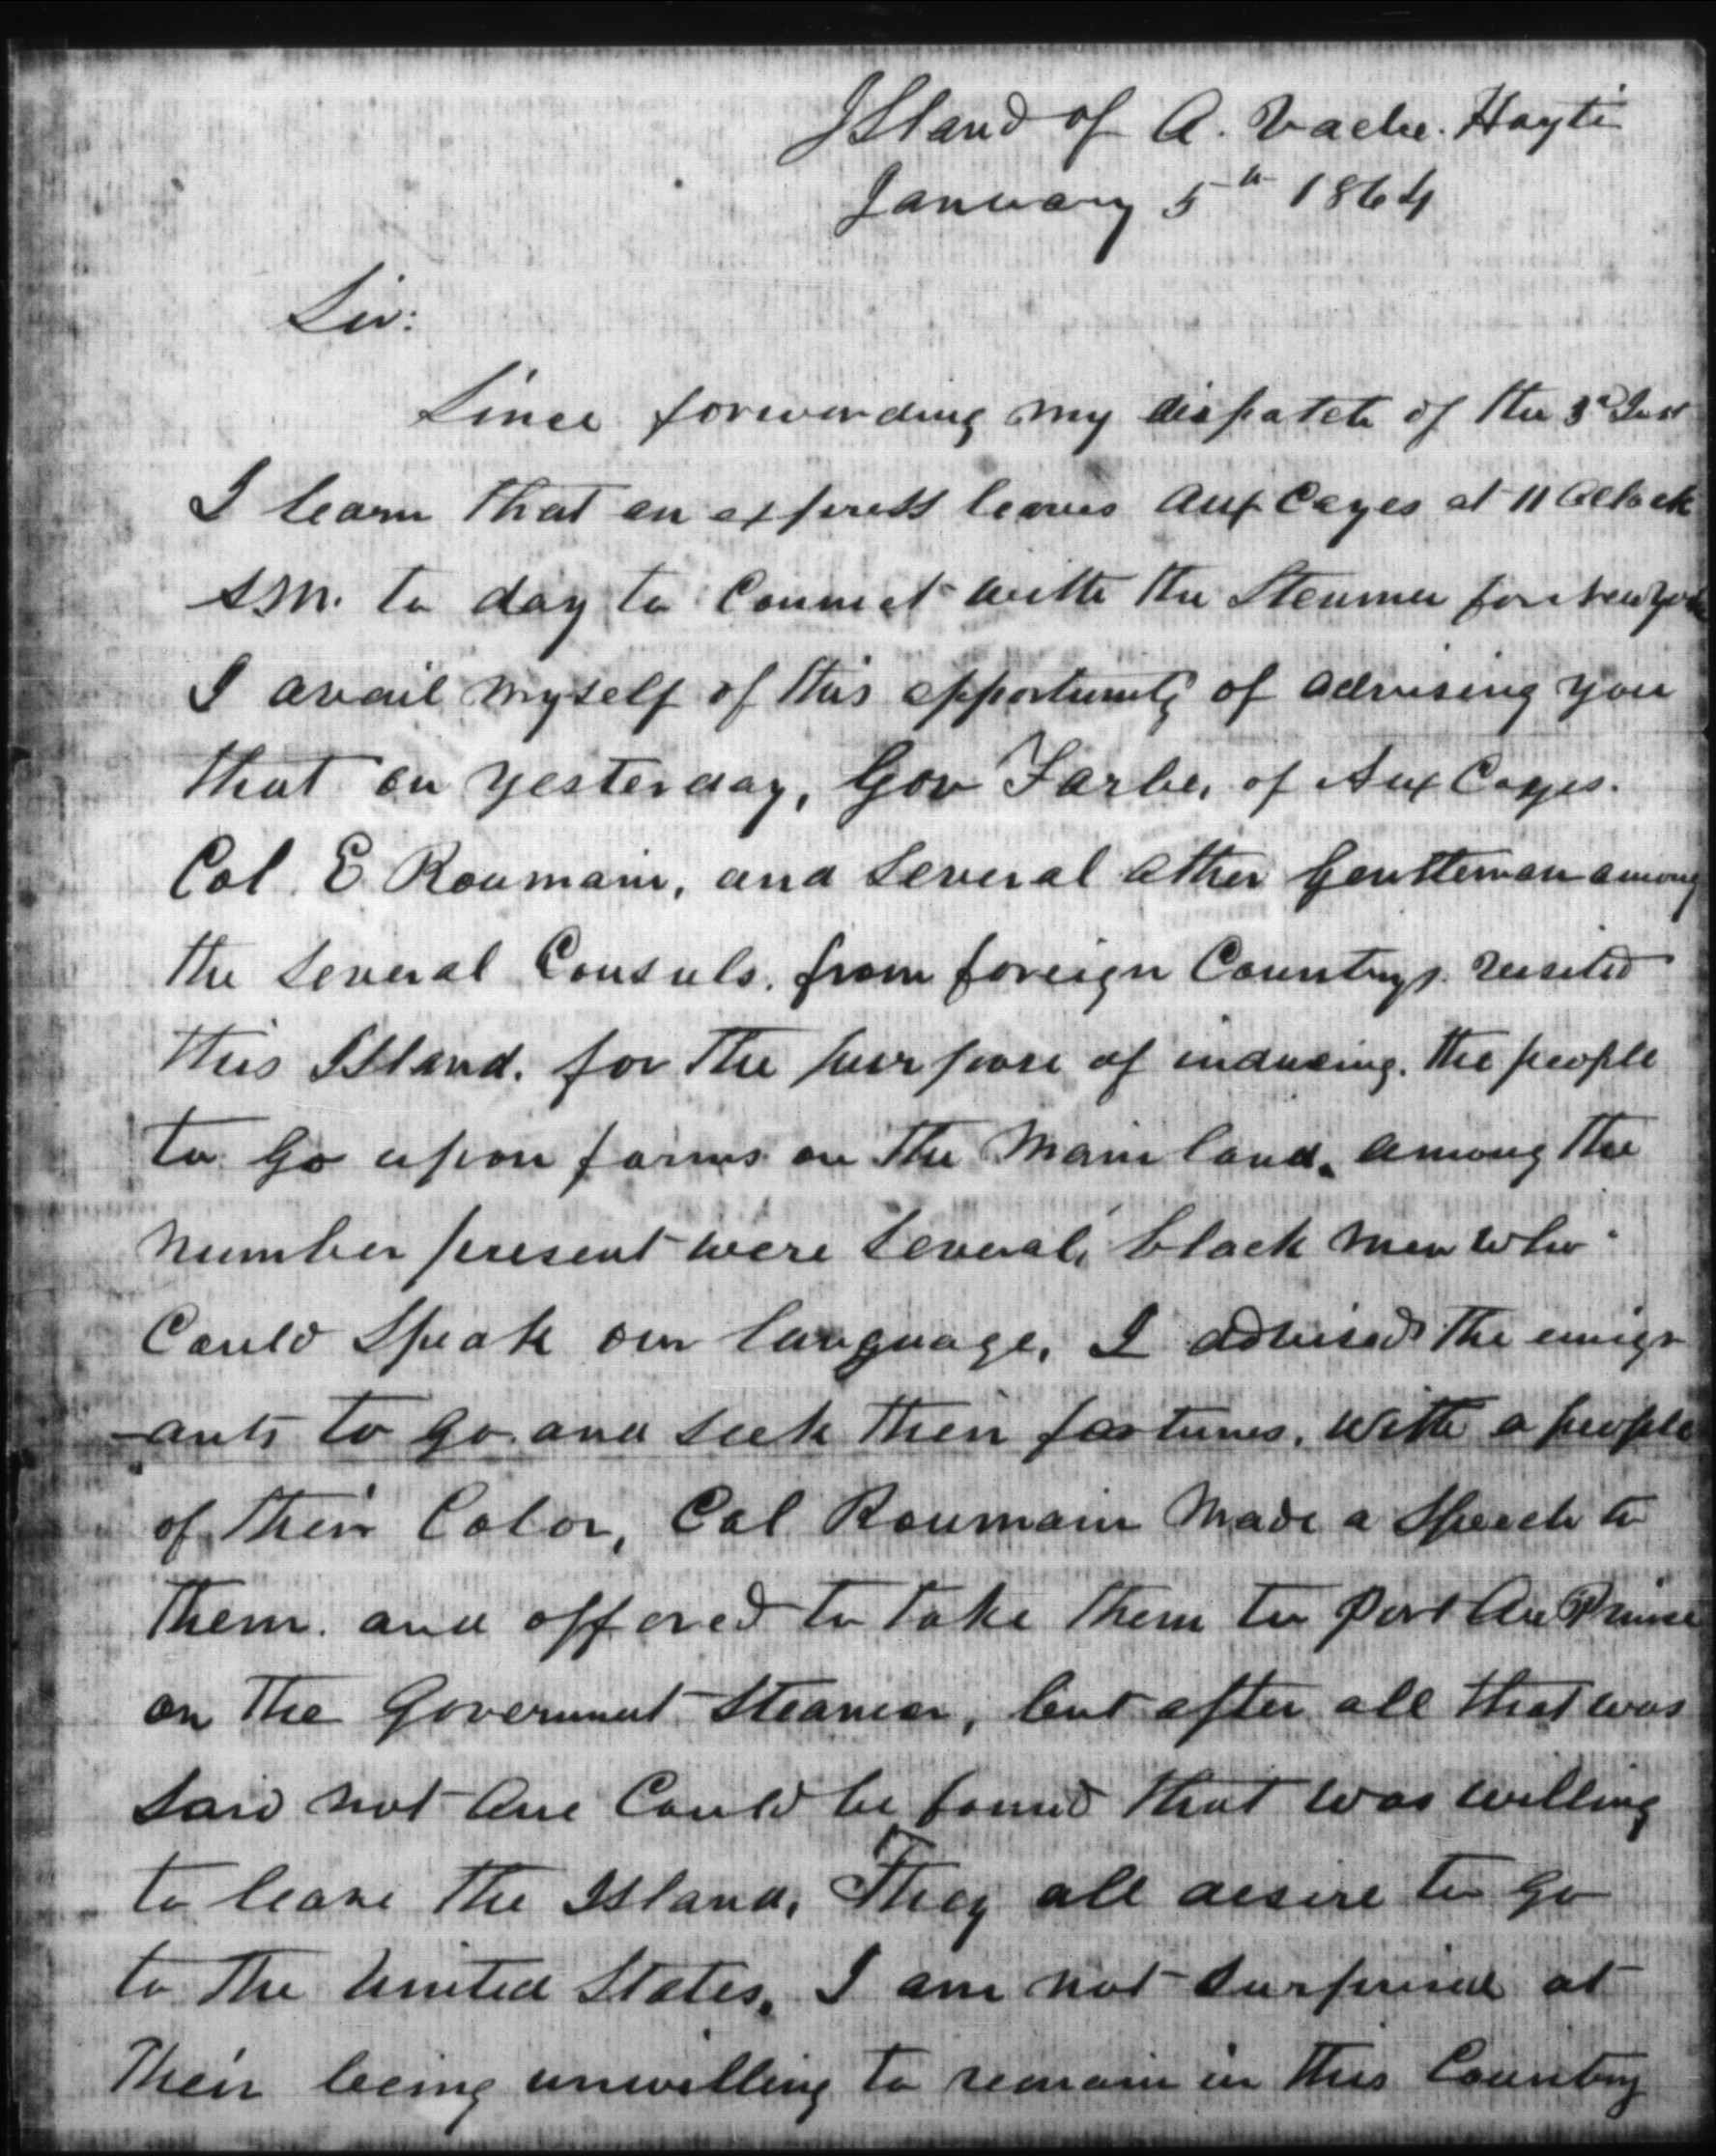 Island of A. Vache. Hayti
January 5th 1864
Sir:
Since forwarding my dispatch of the 3d Inst
I learn that an express leaves Aux Cayes at 11 Oclock
A.M. to day to Connect with the Steamer for New York
I avail myself of this opportunity of advising you
that on yesterday, Gov of Aux Cayes.
Col. E Roumain, and Several other Gentleman among
the Several Consuls. from foreign Countrys. visited
this Island. for the purpose of inducing. the people
to Go upon farms on the Main land. among the
number present were Several, black men who
Could Speak our language, I advised the emigr
-ants to go and seek their fortunes. with a people
of their Color, Col Roumain Made a Speech to
them. and offered to take them to Port Au Prince
on the Government Steamer, but after all that was
said not One Could be found that was willing
to leave the Island, They all desire to go
to the United States. I am not Surprised at
their being unwilling to remain in this Country